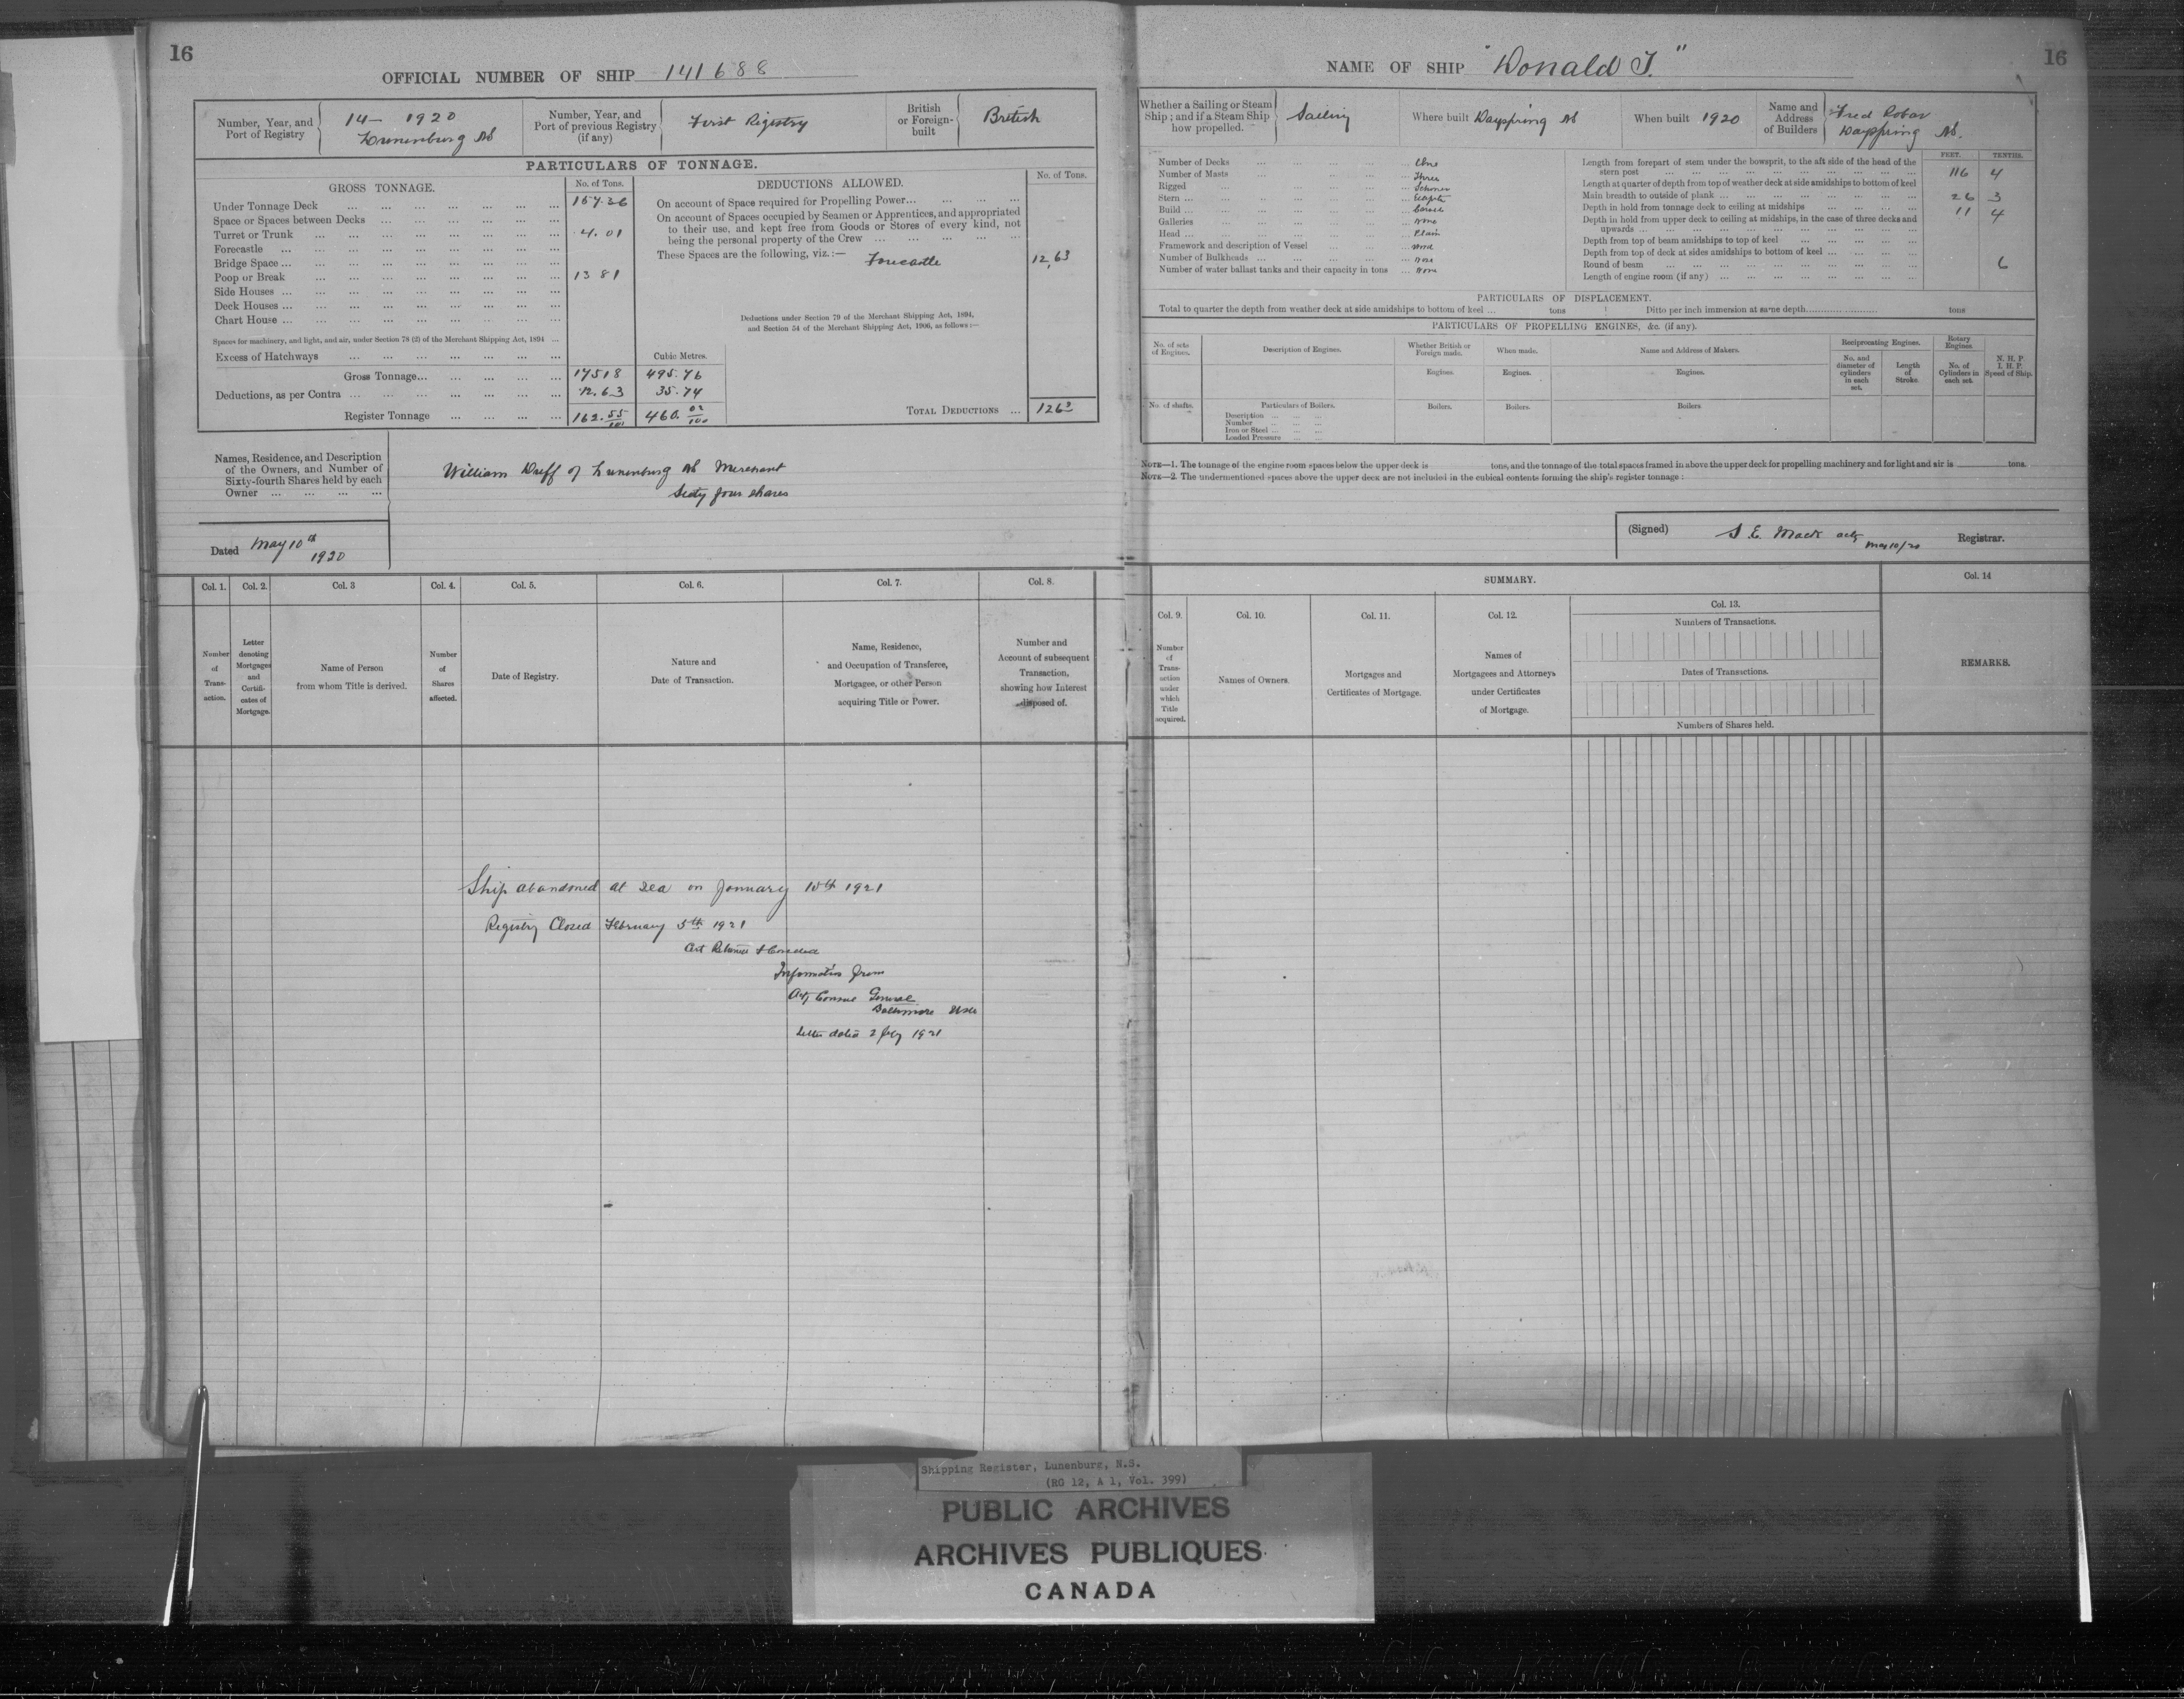 16
OFFICIAL NUMBER OF SHIP 141688
Number, Year, and Port of Registry
14 - 1920
Lunenburg NS
Number, Year, and Port of previous Registry (if any)
First Registry
British or Foreign-built
British
PARTICULARS OF TONNAGE.
GROSS TONNAGE.
No. of Tons.
Under Tonnage Deck ... 157.36
Space or Spaces between Decks ...
Turret or Trunk ... 4.01
Forecastle ...
Bridge Space ...
Poop or Break ... 13 81
Side Houses ...
Deck Houses ...
Chart House ...
Spaces for machinery, and light, and air, under Section 78 (2) of the Merchant Shipping Act, 1894 ...
Excess of Hatchways ...
Cubic Metres.
Gross Tonnage... 175 18 495.76
Deductions, as per Contra ... 12.63 35.74
Register Tonnage ... 162.55/100 460.02/100
DEDUCTIONS ALLOWED.
No. of Tons.
On account of Space required for Propelling Power...
On account of Spaces occupied by Seamen or Apprentices, and appropriated
to their use, and kept free from Goods or Stores of every kind, not
being the personal property of the Crew ...
These Spaces are the following, viz.:—
Forecastle 12.63
Deductions under Section 79 of the Merchant Shipping Act, 1894,
and Section 54 of the Merchant Shipping Act, 1906, as follows:—
TOTAL DEDUCTIONS ... 12 63
Names, Residence, and Description
of the Owners, and Number of
Sixty-fourth Shares held by each
Owner ...
William Duff of Lunenburg NS Merchant
Sixty four shares
Dated May 10th
1920
Col. 1. Col. 2. Col. 3 Col. 4. Col. 5. Col. 6. Col. 7. Col. 8.
Number of Transaction.
Letter denoting Mortgages and Certificates of Mortgage.
Name of Person
from whom Title is derived.
Number of Shares affected.
Date of Registry.
Nature and
Date of Transaction.
Name, Residence,
and Occupation of Transferee,
Mortgagee, or other Person
acquiring Title or Power.
Number and
Account of subsequent
Transaction,
showing how Interest
disposed of.
Ship abandoned at Sea on January 10th 1921
Registry Closed February 5th 1921
Information from
Consul General
Baltimore
Letter dated 2 Feby 1921
NAME OF SHIP "Donald J."
16
Whether a Sailing or Steam
Ship; and if a Steam Ship
how propelled.
Sailing
Where built Dayspring NS
When built 1920
Name and
Address
of Builders
Fred Robar
Dayspring NS.
Number of Decks ... One
Number of Masts ... Three
Rigged ... Schoner
Stern ...
Build ... Carvel
Galleries ... None
Head ... Plain
Framework and description of Vessel ... Wood
Number of Bulkheads ... None
Number of water ballast tanks and their capacity in tons ... None
FEET. TENTHS.
Length from forepart of stem under the bowsprit, to the aft side of the head of the
stern post ... 116 4
Length at quarter of depth from top of weather deck at side amidships to bottom of keel
Main breadth to outside of plank ... 26 3
Depth in hold from tonnage deck to ceiling at midships ... 11 4
Depth in hold from upper deck to ceiling at midships, in the case of three decks and
upwards ...
Depth from top of beam amidships to top of keel ...
Depth from top of deck at sides amidships to bottom of keel ...
Round of beam ... 6
Length of engine room (if any) ...
PARTICULARS OF DISPLACEMENT.
Total to quarter the depth from weather deck at side amidships to bottom of keel ... tons
Ditto per inch immersion at same depth... tons
PARTICULARS OF PROPELLING ENGINES, &c. (if any).
No. of sets of Engines.
Description of Engines.
Whether British or Foreign made.
When made.
Name and Address of Makers.
Reciprocating Engines.
Rotary Engines.
N. H. P.
I. H. P.
Speed of Ship.
Engines. Engines. Engines.
No. and diameter of cylinders in each set.
Length of Stroke.
No. of Cylinders in each set.
No. of shafts.
Particulars of Boilers.
Boilers. Boilers. Boilers.
Description ...
Number ...
Iron or Steel ...
Loaded Pressure ...
NOTE—1. The tonnage of the engine room spaces below the upper deck is tons, and the tonnage of the total spaces framed in above the upper deck for propelling machinery and for light and air is tons.
NOTE—2. The undermentioned spaces above the upper deck are not included in the cubical contents forming the ship's register tonnage:
(Signed) S. E. Mack actg May 10/20 Registrar.
SUMMARY.
Col. 9. Col. 10. Col. 11. Col. 12. Col. 13. Col. 14
Number of Transaction under which Title acquired.
Names of Owners.
Mortgages and
Certificates of Mortgage.
Names of
Mortgagees and Attorneys
under Certificates
of Mortgage.
Numbers of Transactions.
Dates of Transactions.
Numbers of Shares held.
REMARKS.
Shipping Register, Lunenburg, N.S.
(RG 12, A 1, Vol. 399)
PUBLIC ARCHIVES
ARCHIVES PUBLIQUES
CANADA